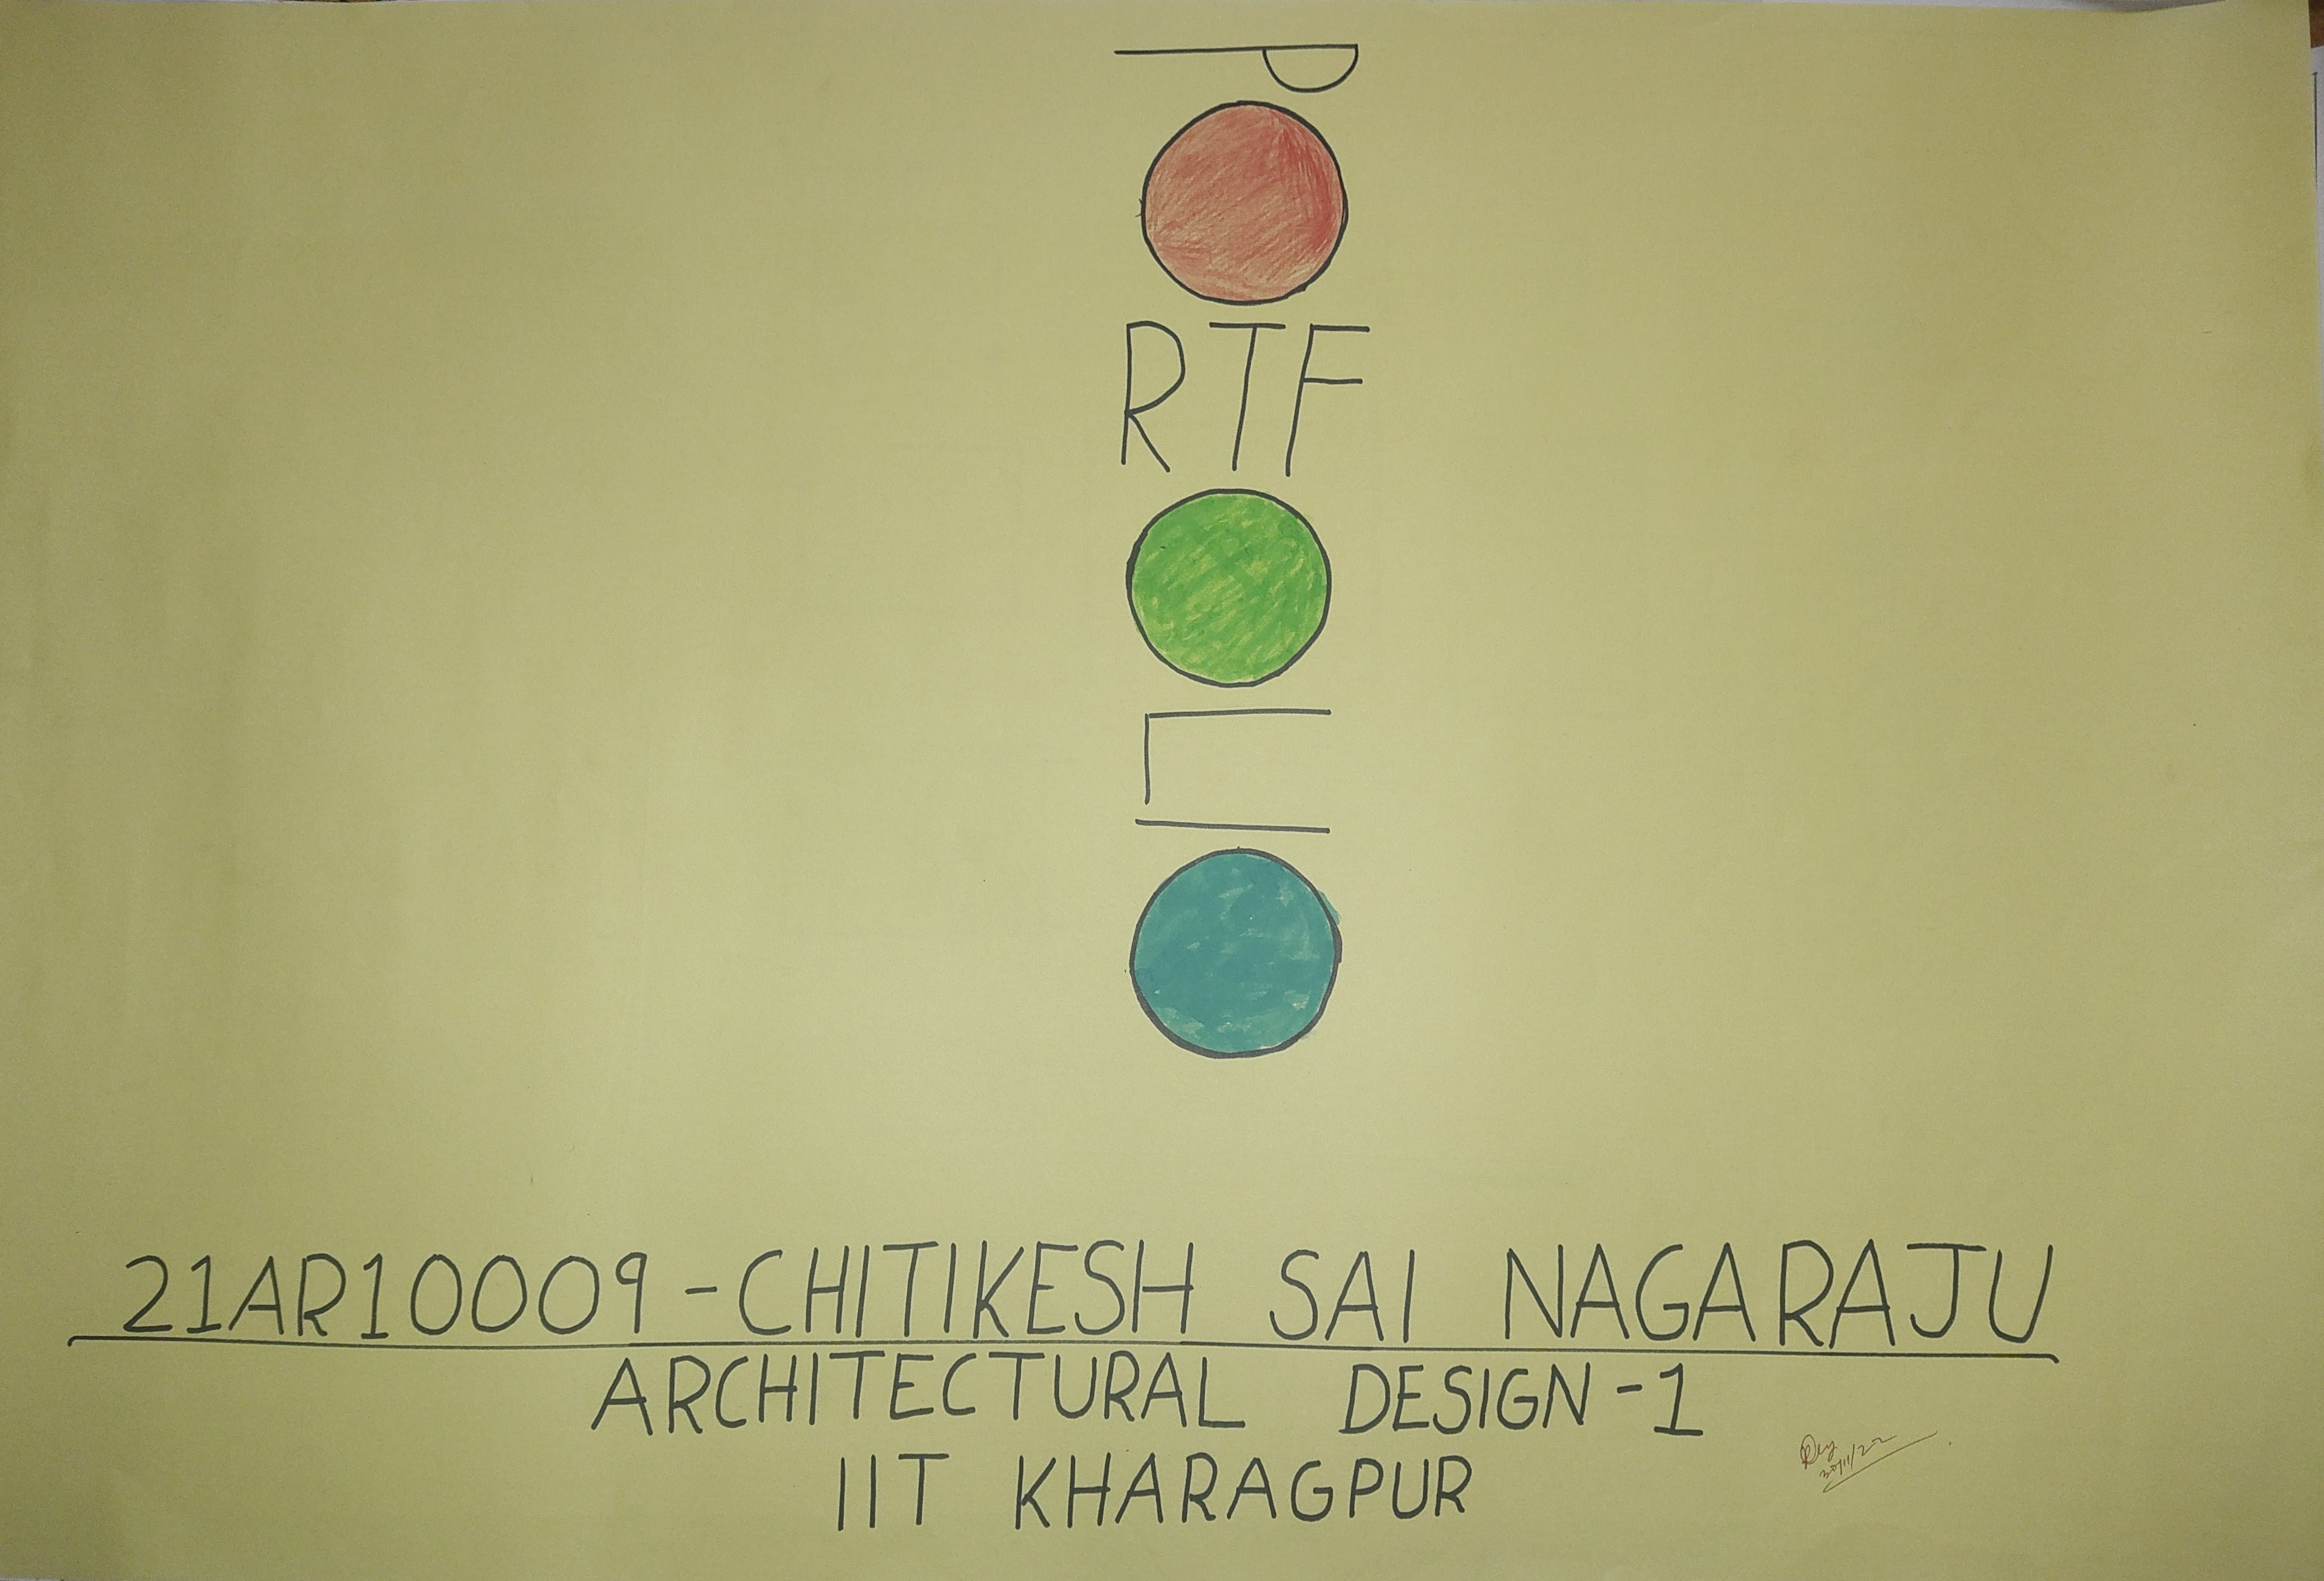 PORTFOLIO
21AR10009-CHITIKESH SAI NAGARAJU
ARCHITECTURAL DESIGN-1
IIT KHARAGPUR
30/11/22